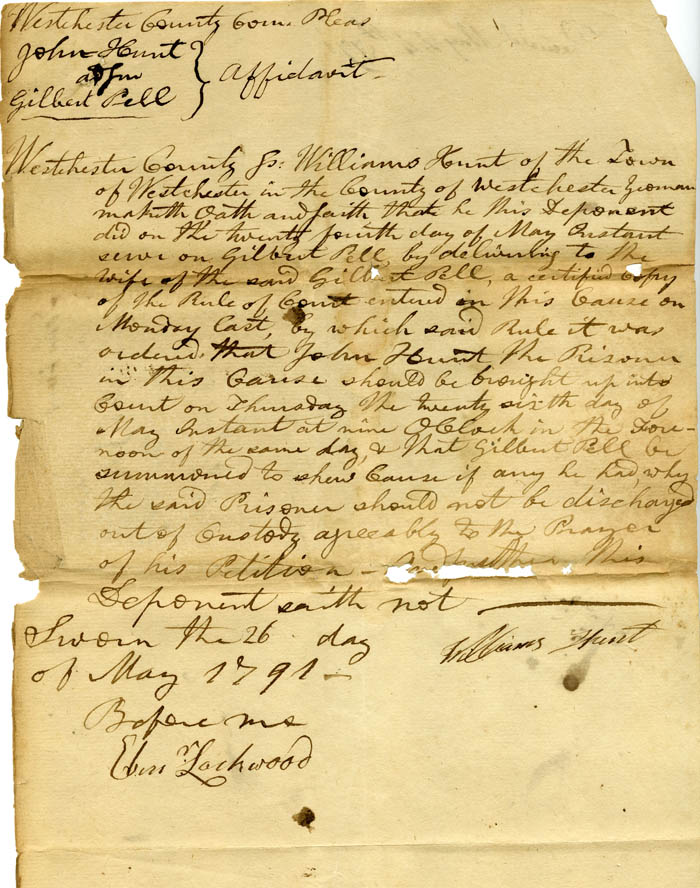 Westchester County Com. Pleas
John Hunt
adsm
Gilbert Pell
Affidavit
Westchester County Ss: Williams Hunt of the Town
of Westchester in the County of Westchester Yeoman
maketh Oath and saith that he this Deponent
did on the twenty fourth day of May Instant
serve on Gilbert Pell, by delivering to the
wife of the said Gilbert Pell, a certified Copy
of the Rule of Court entered in this Cause on
Monday Last, by which said Rule it was
ordered that John Hunt the Prisoner
in this Cause should be brought up into
Court on Thursday the twenty sixth day of
May Instant at nine OClock in the Fore-
noon of the same day, & that Gilbert Pell be
summoned to shew Cause if any he had, why
the said Prisoner should not be discharged
out of Custody agreeably to the Prayer
of his Petition - And further this
Deponent saith not
Sworn the 26 day
of May 1791-
Williams Hunt
Before me
Eben Lockwood